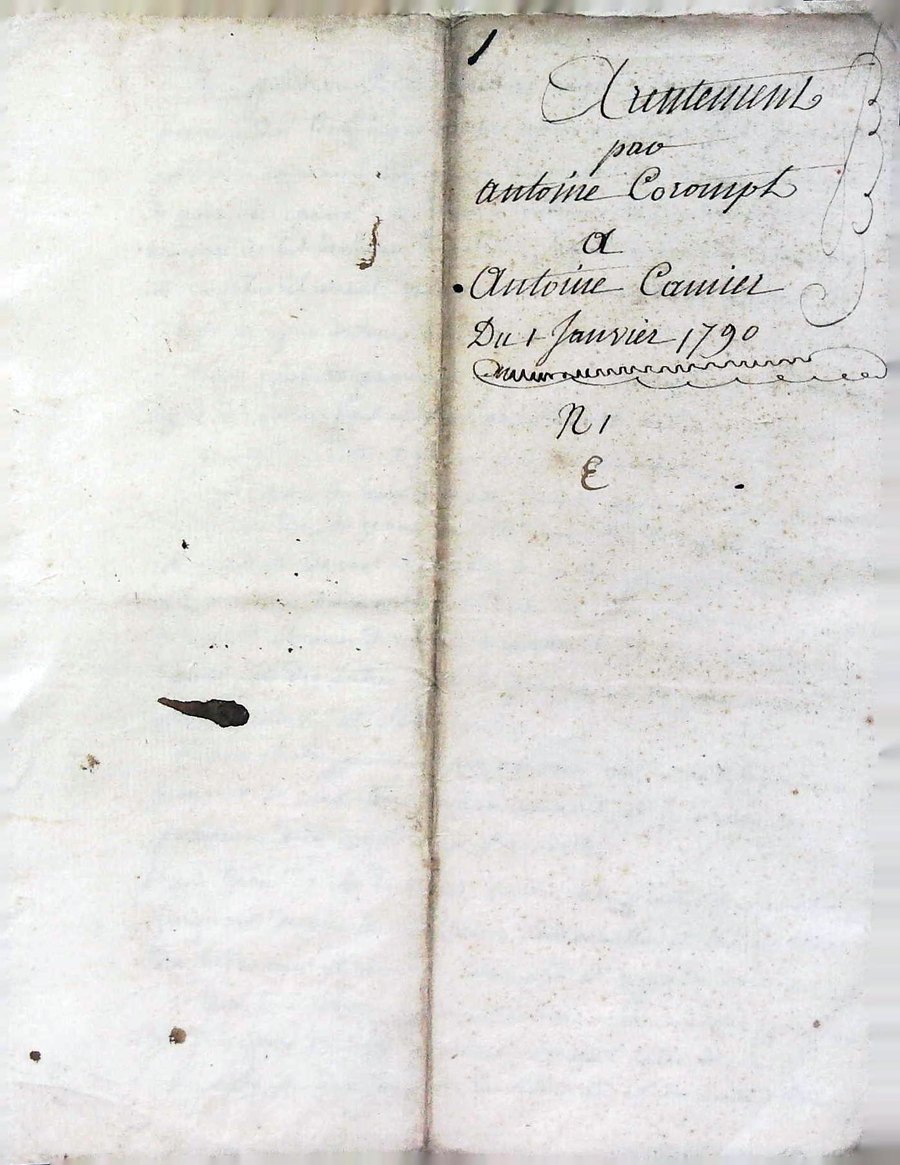 1
Arentement
par
antoine Corompt
a
Antoine Camier
Du 1 Janvier 1790
N 1
E